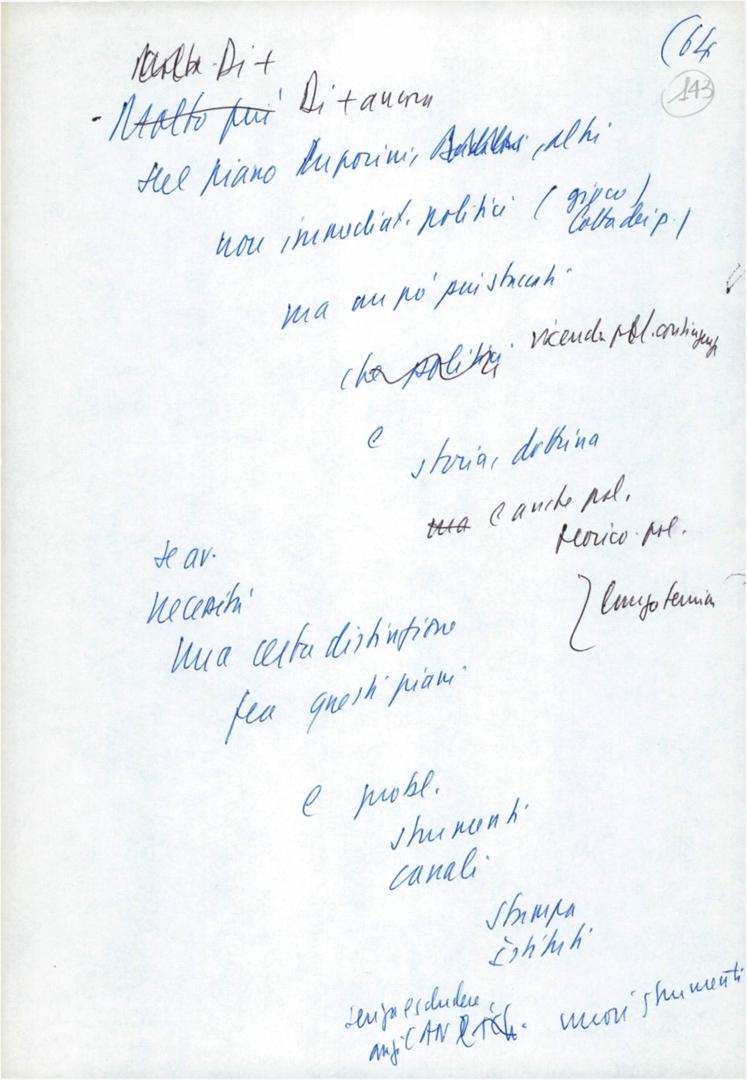 (64
143
Molto Di +
- Molto più Di + ancora
sul piano Luporini, , altri
non immediat. politici (gioco
lotta dei p.)
ma un po' più staccati
che politici vicenda pol. contingente
e storia, dottrina
ma e anche pol.
teorico-pol.
lungo termine
se av.
necessità
una certa distinzione
fra questi piani
e probl.
strumenti
canali
stampa
istituti
senza escludere,
anzi nuovi strumenti